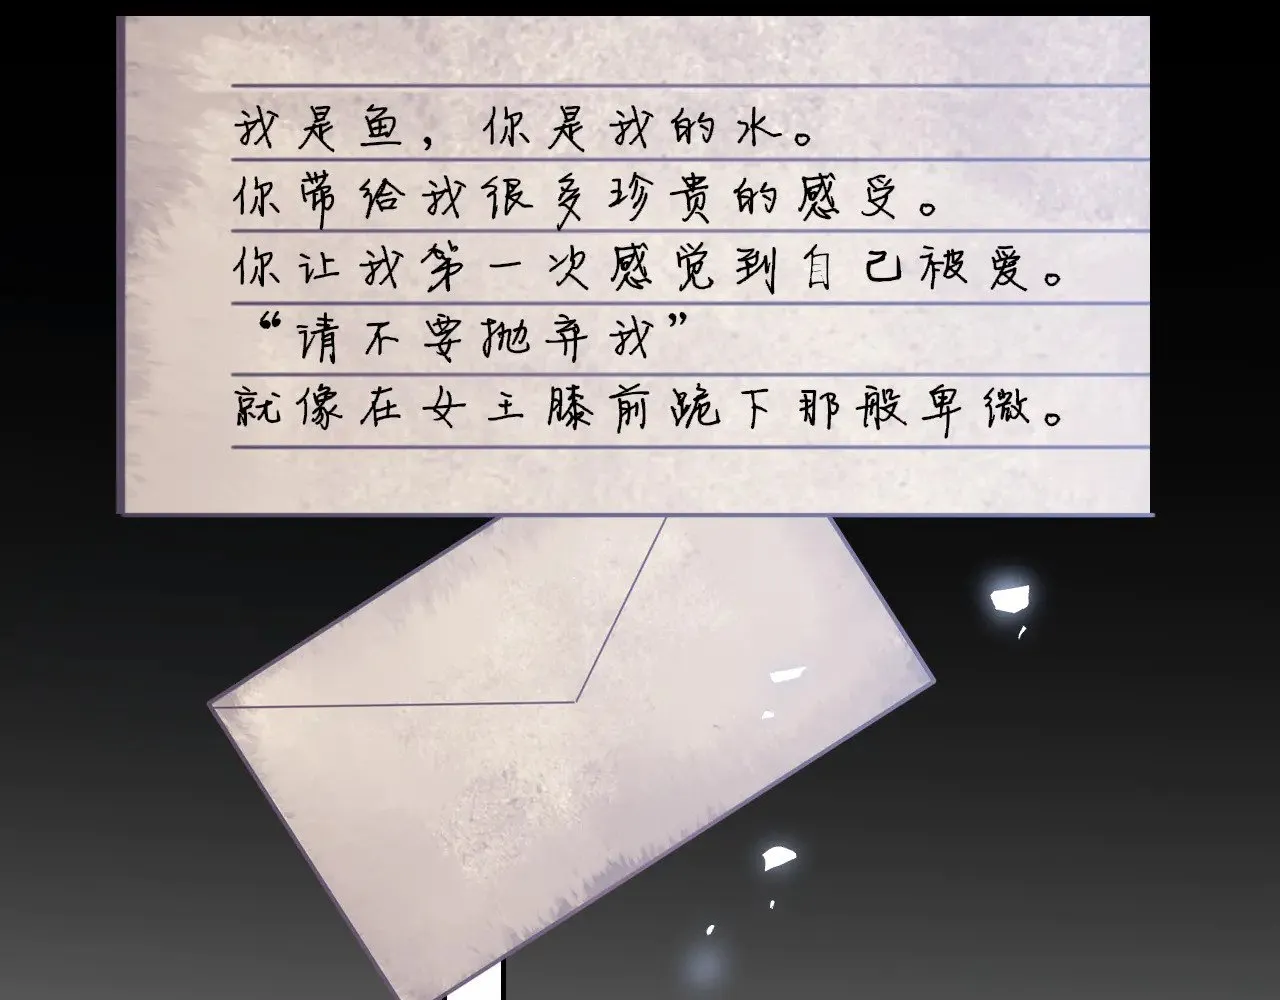 我是鱼，你是我的水。
你带给我很多珍贵的感受。
你让我第一次感觉到自己被爱。
“请不要抛弃我”
就像在女王膝前跪下那般卑微。